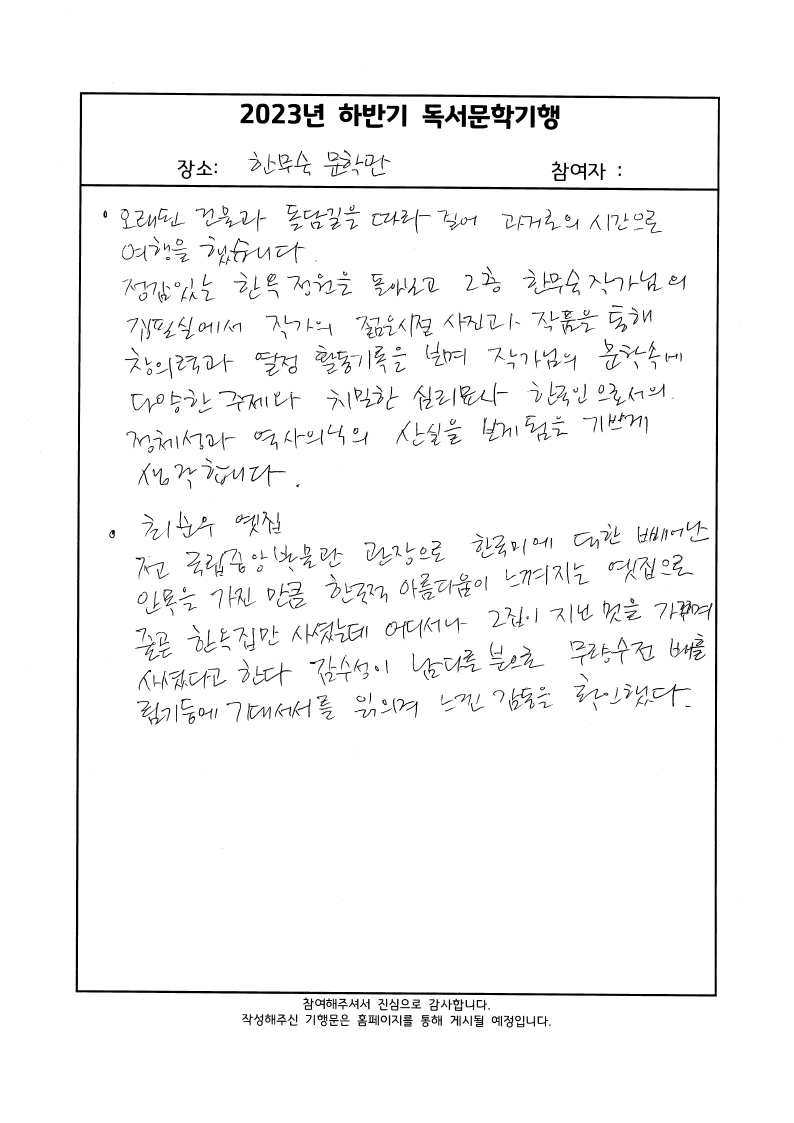 2023년 하반기 독서문학기행
장소: 한무숙 문학관 참여자 :
• 오래된 건물과 돌담길을 따라 걸어 과거로의 시간으로
여행을 했습니다.
정감있는 한옥 정원을 돌아보고 2층 한무숙작가님의
집필실에서 작가의 젊은시절 사진과 작품을 통해
창의력과 열정 활동기록을 보며 작가님의 문학속에
다양한 주제와 치밀한 심리묘사 한국인으로서의
정체성과 역사의식의 산실을 보게됨을 기쁘게
생각합니다.
• 최순우 옛집
전 국립중앙박물관 관장으로 한국미에 대한 빼어난
안목을 가진 만큼 한국적 아름다움이 느껴지는 옛집으로
줄곧 한옥집만 사셨는데 어디서나 그집이 지닌 멋을 가꾸며
사셨다고 한다 감수성이 남다른 분으로 무량수전 배흘
림기둥에 기대서서를 읽으며 느낀 감동을 확인했다.
참여해주셔서 진심으로 감사합니다.
작성해주신 기행문은 홈페이지를 통해 게시될 예정입니다.